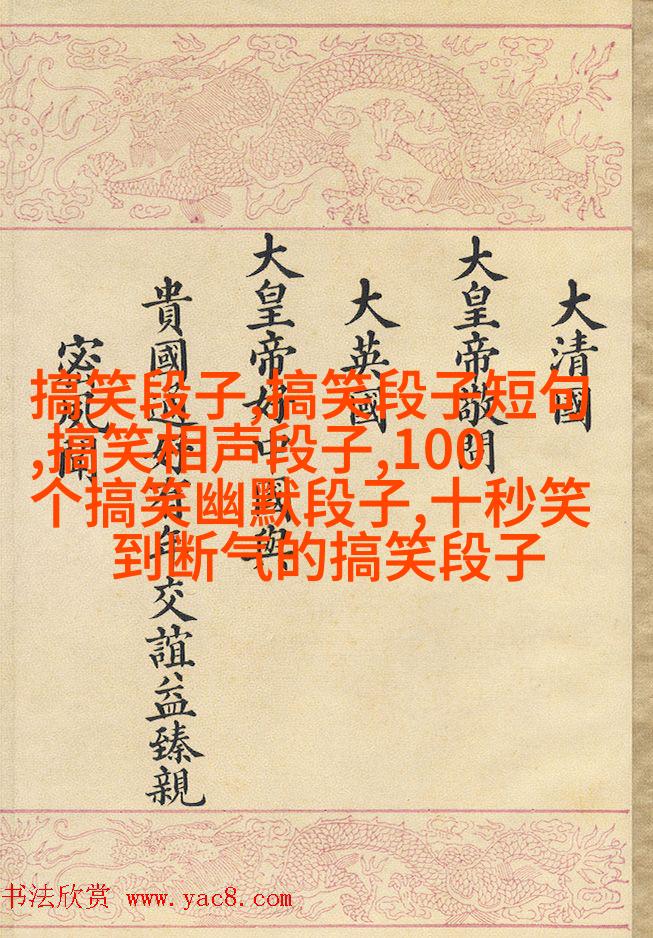 大清國
大皇帝敬問
大英國
大皇帝好中國與
貴國通好有年交誼益臻親
密夙聞
搞笑段子,搞笑段子短句
,搞笑相声段子,100
个搞笑幽默段子,十秒笑
到断气的搞笑段子
书法欣赏 www.yac8.com